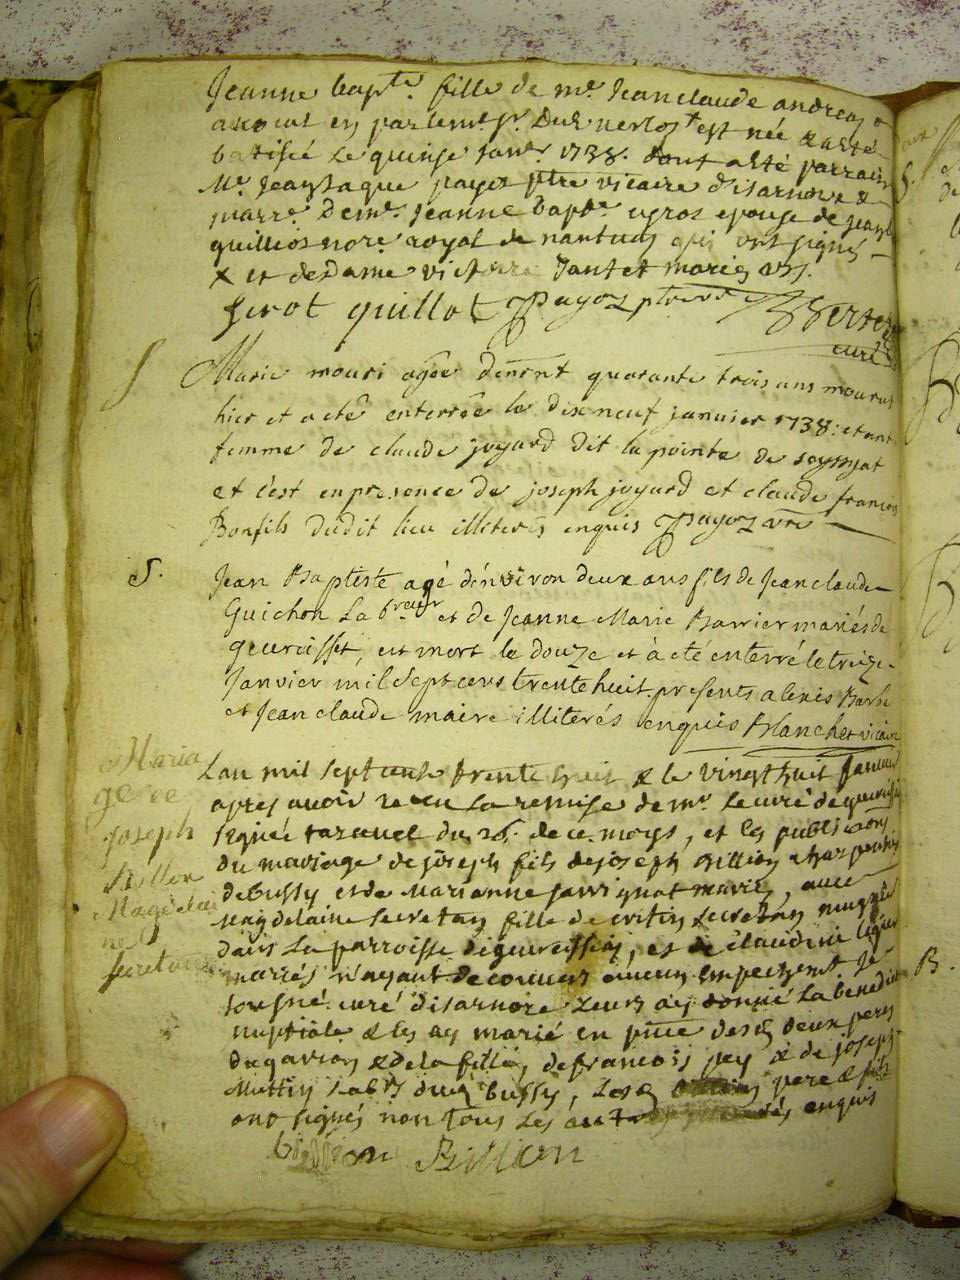 Jeanne bapte. fille de mr. Jeanclaude andrea
avocat en parlemt. sr. est née & a eté
batisée Le quinse Janvr. 1738. dont a eté parrain
Mr. Jean Jaque payot ptre vicaire d'isarnore &
marre. Demle. Jeanne bapte. ugros epouse de Jean
quillios nore. royal de nantua qui ont signé
X et de Dame victoire Jantet mariés
Jerot quillot Payoz ptre vre
curé
S
Marie mouri agée denvrt quarante trois ans mourut
hier et a eté enterrée le dix neuf janvier 1738: etant
femme de claude joyard dit la pointe de soyssiat
et c'est en presence de joseph joyard et claude francois
Bonfils dudit lieu illiterés enquis Payoz vre
S.
Jean Baptiste agé d'environ deux ans fils de Jean claude
Guichon Laboreur et de Jeanne Marie Barrier mariés de
geurcisset, est mort le douze et à eté enterré le treize
Janvier mil Sept cens trente huit presents alexis Barbe
et Jean claude maire illiterés enquis Blanchet vicaire
Maria
ge de
joseph
Billon
Magdelai
ne
secretan
Lan mil sept cents trente huit & le vingt huit Janvier
apres avoir receu La remise de mr. Le curé de
signée taravel du 26. de ce moys, et les publications
du mariage de joseph fils de joseph Billion charpentier
de Bussy et de Marianne mariés, avec
Magdelaine Secretan fille de Secretan
dans La parroisse de, et de claudine
mariés n'ayant decouvert aucun empechement Je
sousné. curé d'isarnore Leurs ay donné La benedn
nuptiale & les ay marié en pnce desd deux peres
du garcon & de la fille, de francois pey & de joseph
Muttin Labrs dud bussy, Lesd billion pere & fils
ont signés non tous Les autres enquis
billion Billion